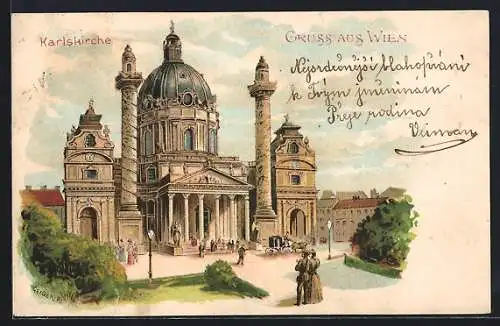 Karlskirche
GRUSS AUS WIEN
Nejsrdečnější blahopřání
k Tvým jmeninám
Přeje rodina